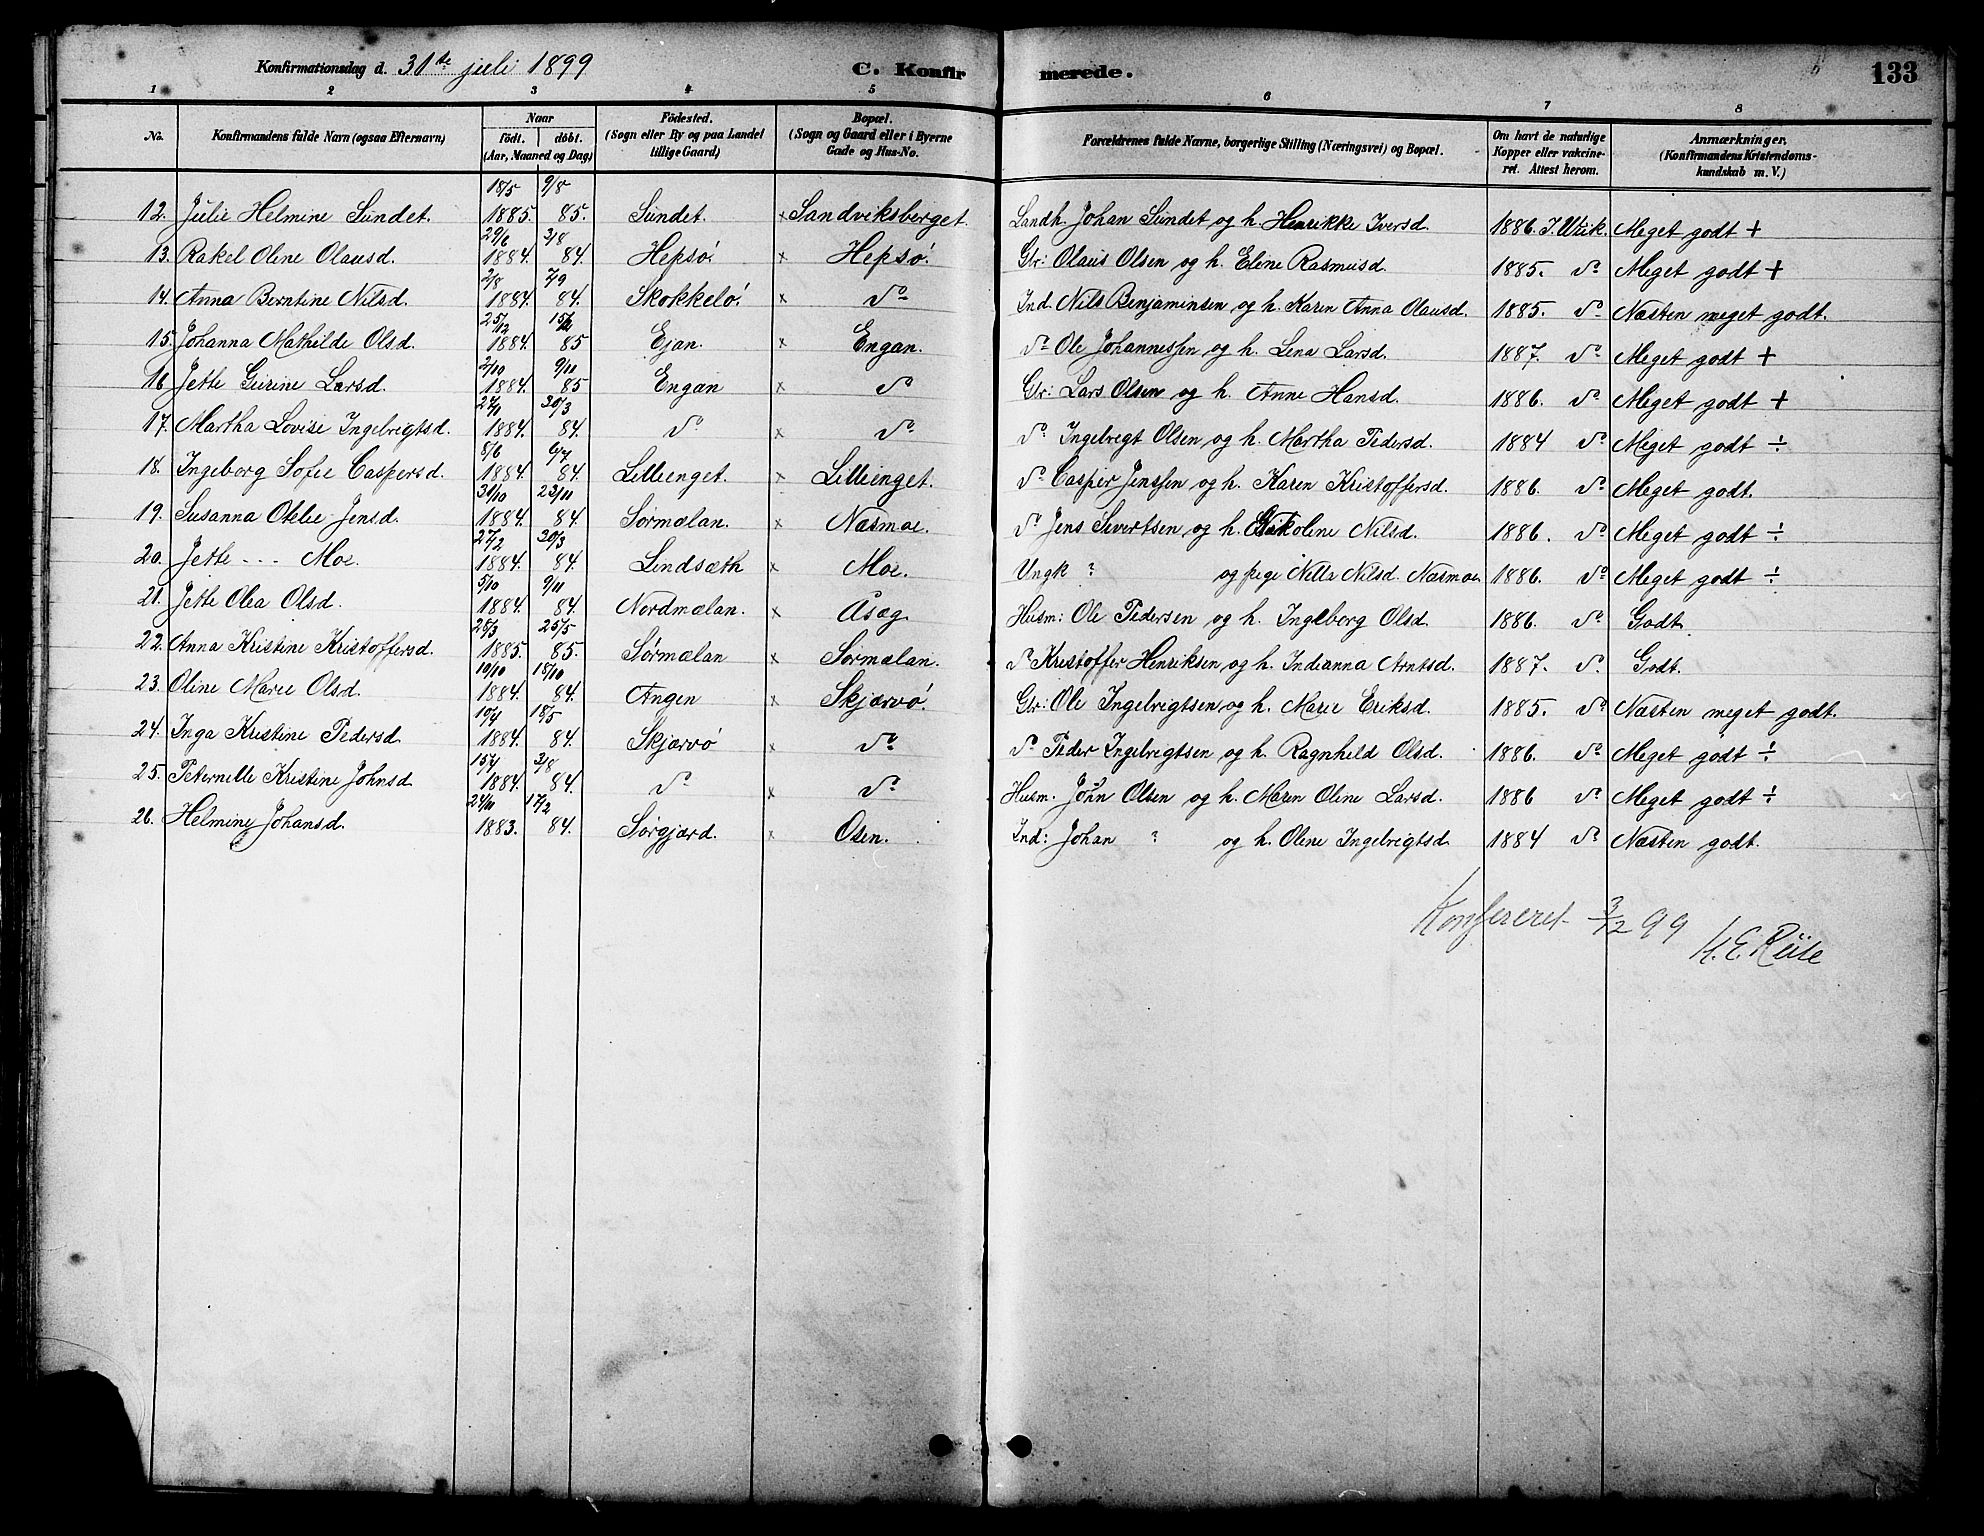 Konfirmationsdag d. 31te juli 1899 C. Konfir merede. 133
1 2 3 4 5 6 7 8
No. Konfirmandens fulde Navn (ogsaa Efternavn) Naar födt. döbt. (Aar, Maaned og Dag) Födested. (Sogn eller By og paa Landet tillige Gaard) Bopæl. (Sogn og Gaard eller i Byerne Gade og Hus-No. Forældrenes fulde Navne, borgerlige Stilling (Næringsvei) og Bopæl. Om havt de naturlige Kopper eller vakcineret. Attest herom. Anmærkninger. (Konfirmandens Kristendomskundskab m. V.)
12. Julie Helmine Sundet. 18/5 1885. 9/8 85. Sundet. × Sandviksberget. Landh. Johan Sundet og h. Henrikke Iversd. 1886. J. Wiik. Meget godt +
13. Rakel Oline Olausd. 29/6 1884. 3/8 84. Hepsö. × Hepsö. Gr: Olaus Olsen og h. Eline Rasmusd. 1885. do Meget godt +
14. Anna Berntine Nilsd. 2/8 1884. 7/9 84. Skokkelö. × do Ind. Nils Benjaminsen og h. Karen Anna Olausd. 1885. do Næsten meget godt.
15. Johanna Mathilde Olsd. 25/12 1884. 15/2 85 Ejan. × Engan. do Ole Johannessen og h. Lena Larsd. 1887. do Meget godt +
16 Jette Gurine Larsd. 2/10 1884. 9/11 85 Engan × do Gr: Lars Olsen og h. Anne Hansd. 1886. do Meget godt +
17. Martha Lovise Ingebregtsd. 1884. 30/3 84. do × do do Ingebregt Olsen og h. Martha Pedersd. 1884 do Meget godt ÷
18. Ingeborg Sofie Caspersd. 8/6 1884. 6/7 84. Lillienget. × Lillienget. do Casper Jenssen og h. Karen Kristoffersd. 1886. do Meget godt.
19. Susanna Otelie Jensd. 31/10 1884. 23/11 84. Sørmælan. × Næsmoe. do Jens Sivertsen og h. Nilsd. 1886. do Meget godt ÷
20. Jette - - - Moe. 27/2 1884. 30/3 84 Lindsæth × Moe. Ungk ? og pige Nilla Nilsd. Næsmoe 1886. do Meget godt ÷
21. Jette Olea Olsd. 5/10 1884. 9/11 84. Nordmælan. × Aasag. Husm: Ole Pedersen og h. Ingeborg Olsd. 1886. do Godt.
22. Anna Kristine Kristoffersd. 28/3 1885. 25/5 85. Sørmælan × Sørmælan. do Kristoffer Henriksen og h. Indianna Arntsd. 1887. do Godt.
23. Oline Marie Olsd. 10/10 1884. 18/10 84. Angen × Skjærvö. Gr: Ole Ingebrigtsen og h. Marie Eriksd. 1885. do Næsten meget godt.
24. Inga Kristine Pedersd. 19/4 1884. 18/5 84. Skjærvö × do do Peder Ingebrigtsen og h. Ragnhild Olsd. 1886. do Meget godt ÷
25. Peternelle Kristine Johnsd. 1884. 3/8 84. do × do Husm. John Olsen og h. Maren Oline Larsd. 1886 do Meget godt ÷
26. Helmine Johansd. 1883. 17/2 84. Sørgjærd. × Osen. Ind: Johan ? og h. Oline Ingebrigtsd. 1884 do Næsten godt.
Konfereret 3/12 99